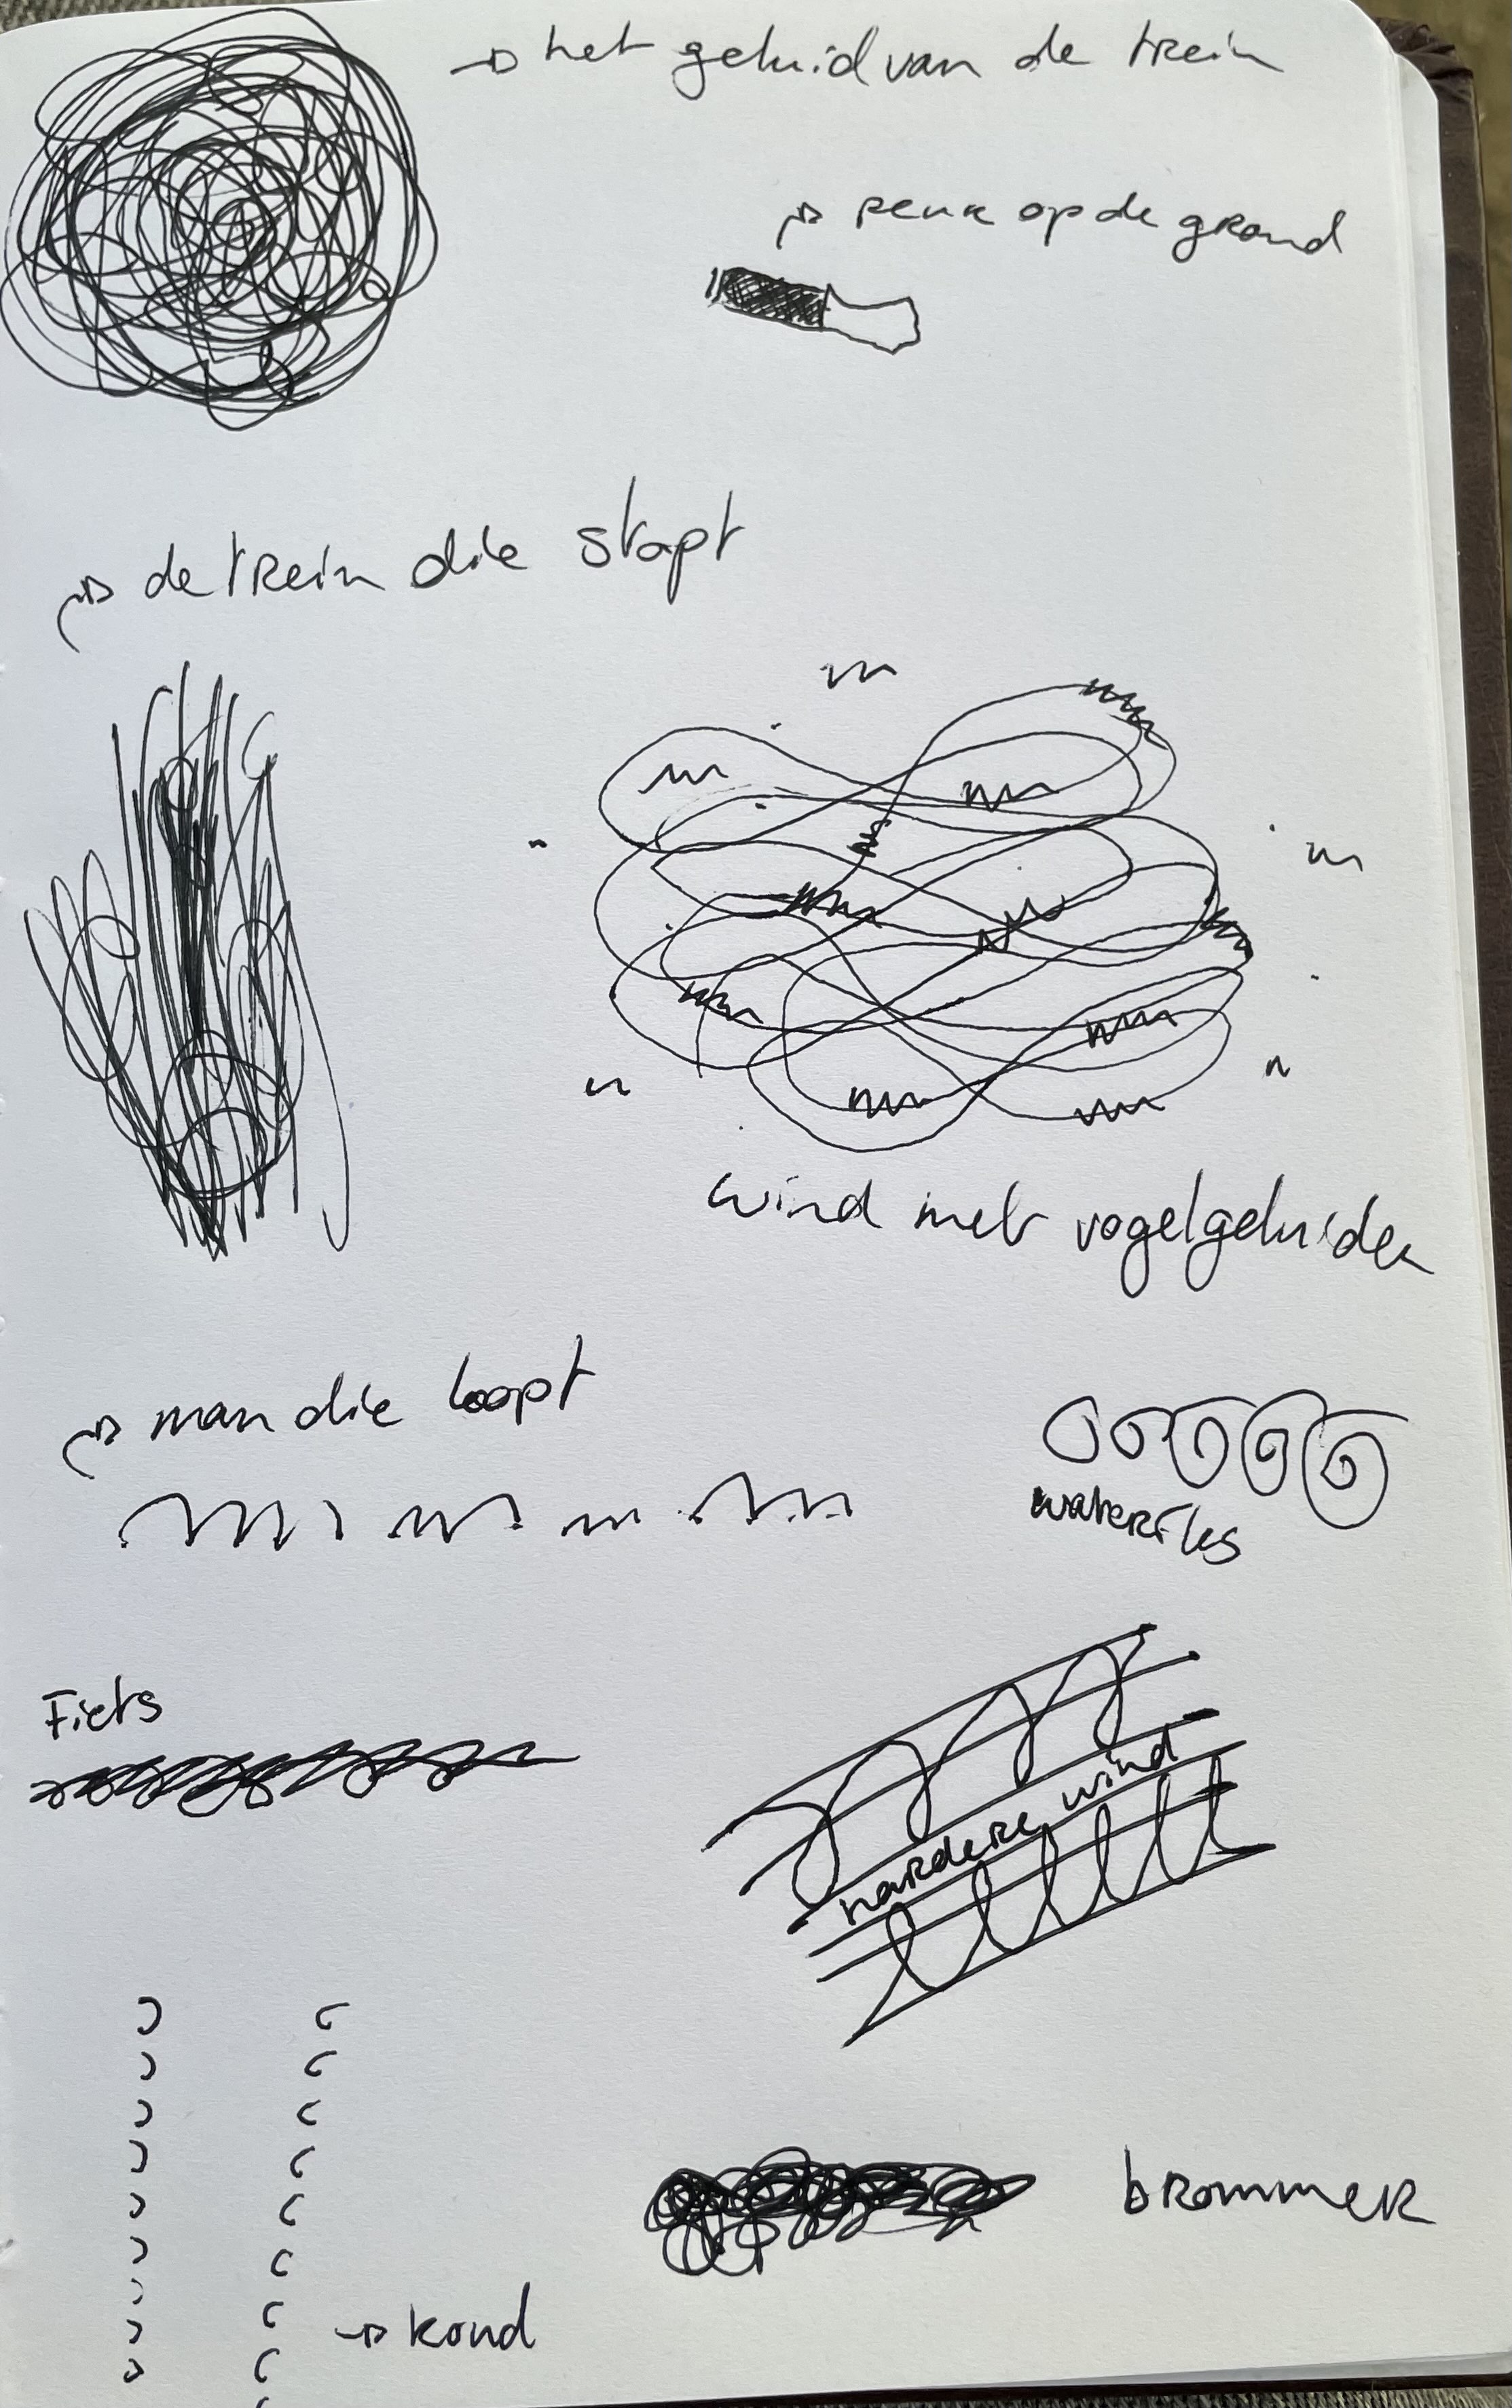 → het geluid van de trein
→ peuk op de grond
→ de trein die stopt
wind met vogelgeluiden
→ man die loopt
waterfles
Fiets
hardere wind
brommer
→ kond